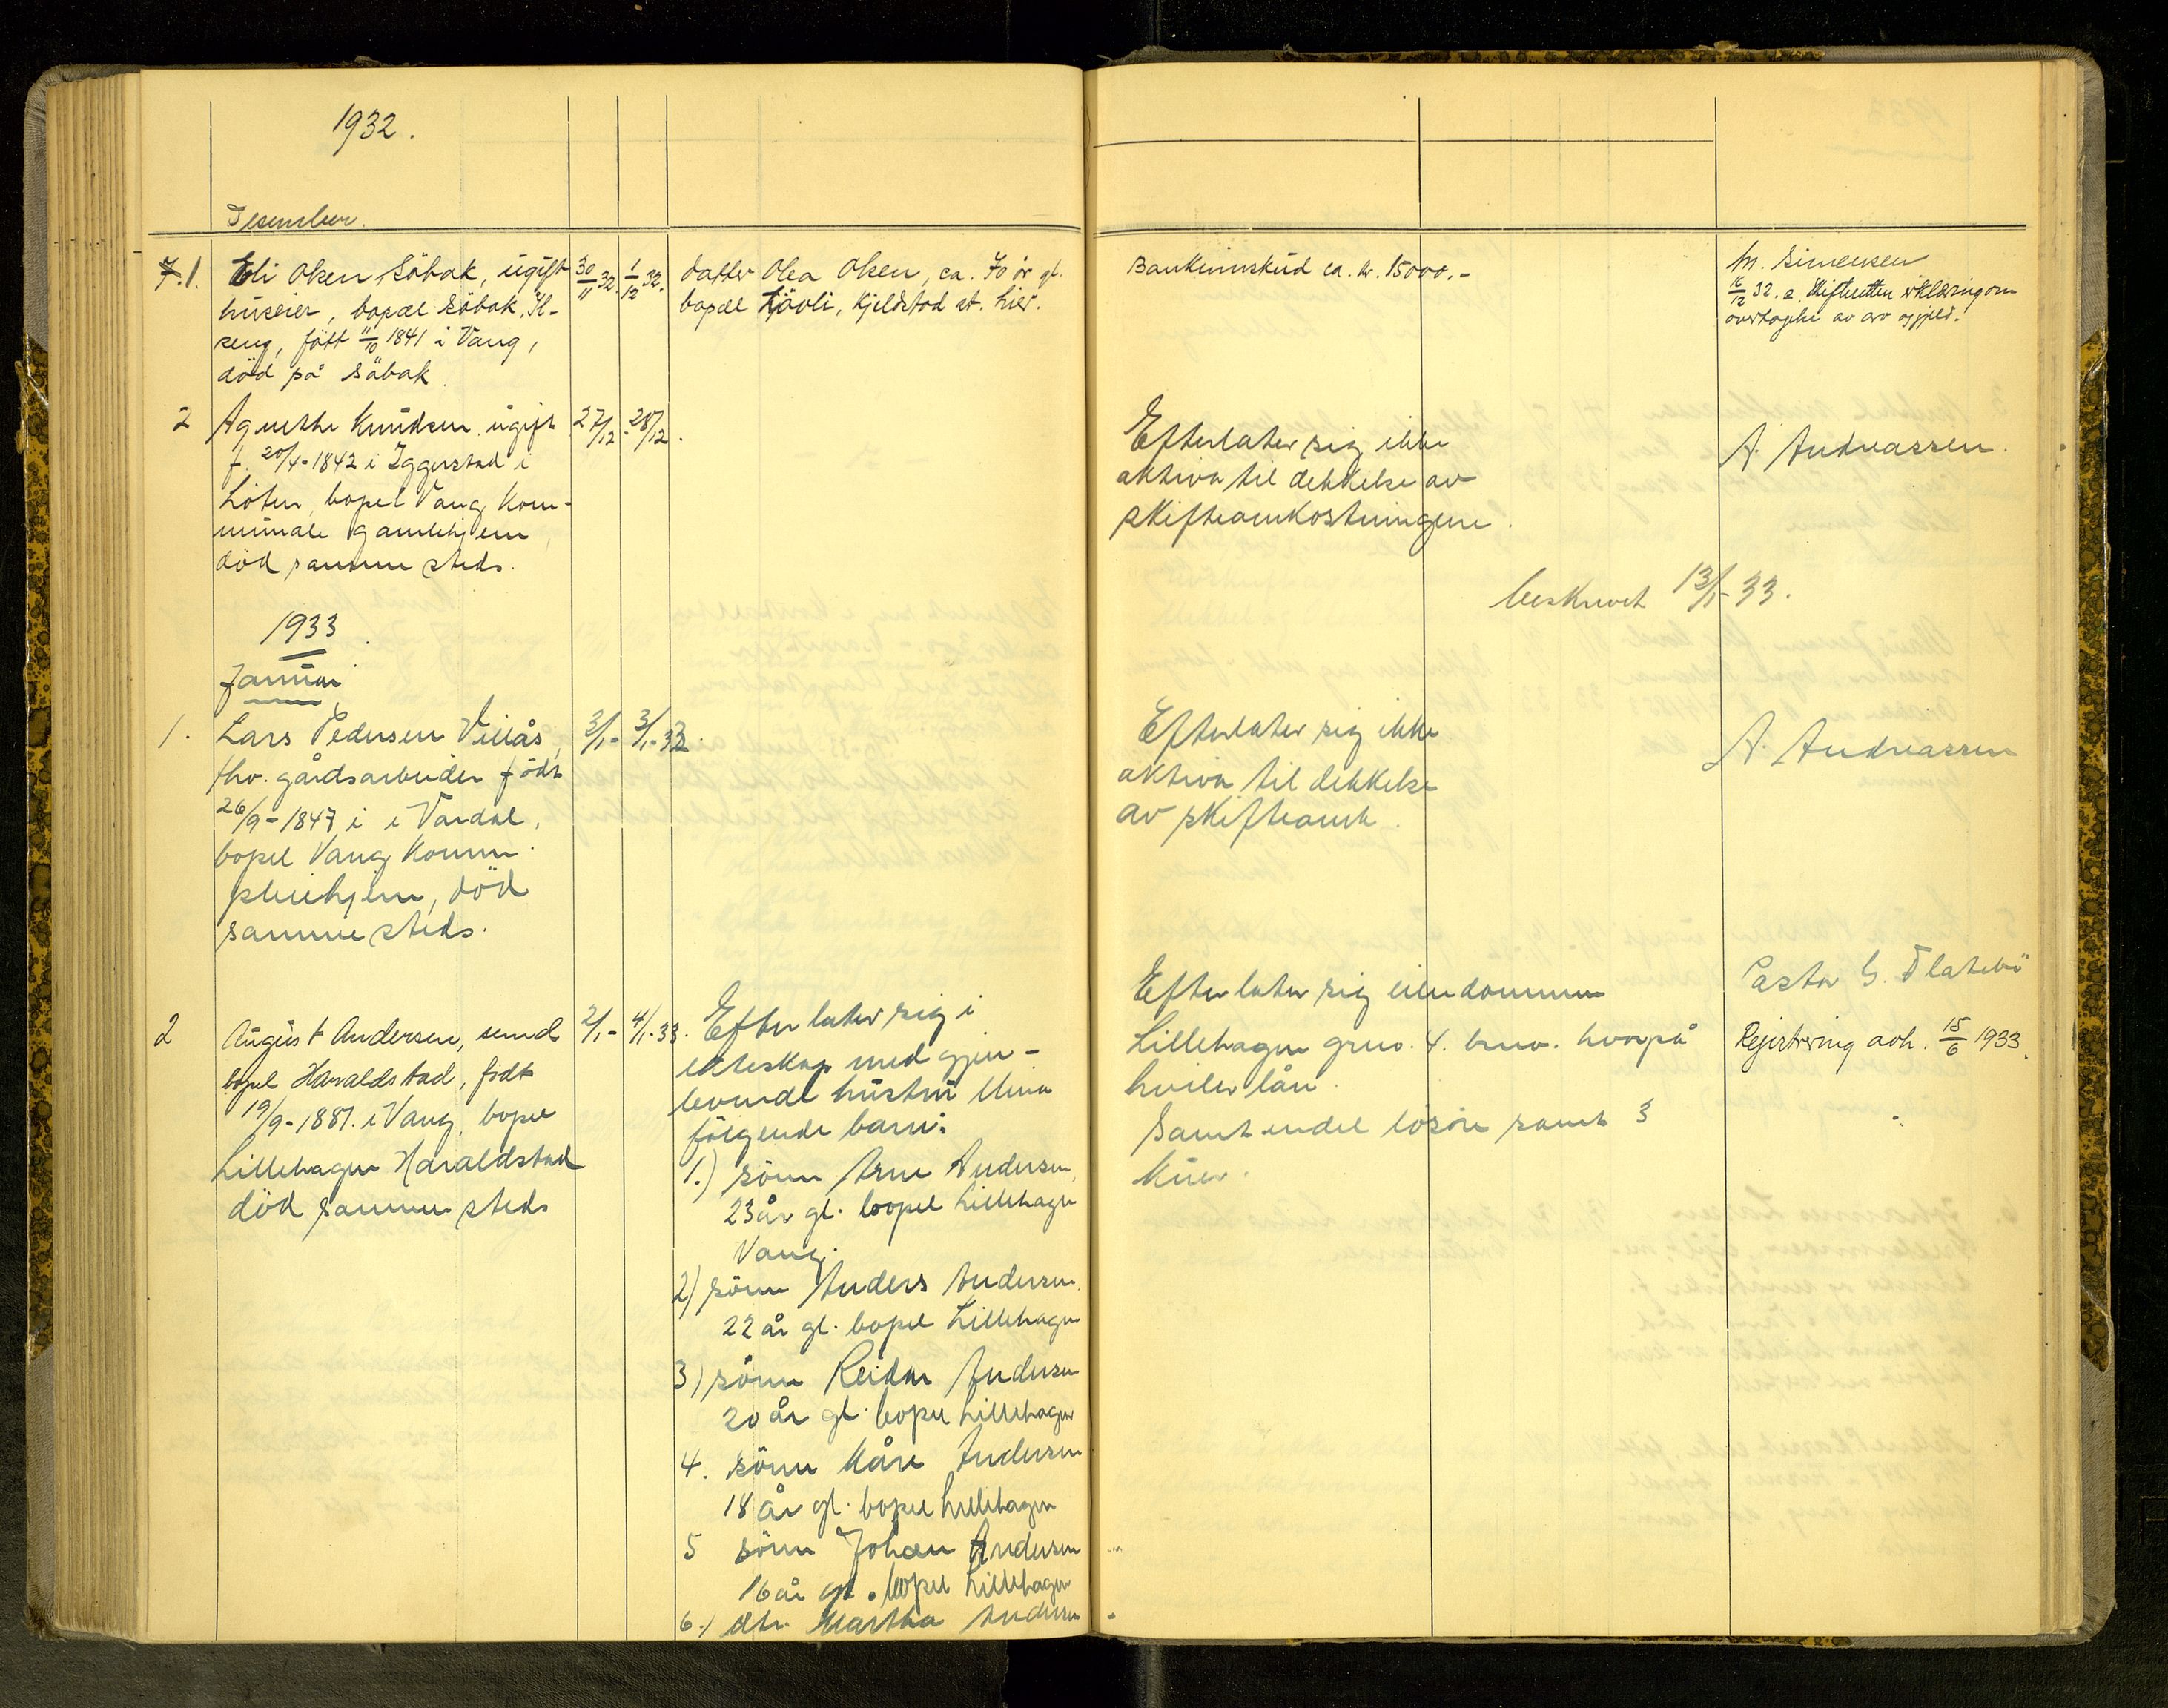 1932.
Desember.
7.1.
Eli Olsen Söbak, ugift
huseier, bopæl Söbak, Il-
seng, født 11/10 1841 i Vang,
död på Söbak.
30/11 32.
1/12 32.
datter Olea Olsen, ca. 70 år gl.
bopæl Kjeldstad st. her.
Bankinnskud ca. kr. 15000.-
M. Simensen
16/12 32. a. Skifteretten erklæring om
overtagelse av arv og gjeld.
2
Agnethe Knudsen ugift
f. 20/4-1842 i Iggerstad i
Löten, bopel Vang Kom-
munale Gamlehjem
död samme steds.
27/12
28/12.
Efterlater sig ikke
aktiva til dekkelse av
skifteomkostningene.
A. Andreassen.
beskrevet 13/1-33.
1933.
Januar
1.
Lars Pedersen
fhv. gårdsarbeider født
26/9-1847 i i Vardal,
bopel Vang Komm.
pleiehjem, död
samme steds.
3/1-
3/1-33.
Efterlater sig ikke
aktiva til dekkelse
av skifteomk.
A. Andreassen
2
August Andersen, smed
bopel Haraldstad, født
19/9-1881. i Vang, bopel
Lillehagen Haraldstad
död samme steds
2/1-
4/1-33.
Efterlater sig i
ekteskap med gjen-
levende hustru Mina
følgende barn:
1.) sönn Arne Andersen,
23 år gl. bopel Lillehagen
Vang.
2) sönn Anders Andersen.
22 år gl. bopel Lillehagen
3) sönn Reidar Andersen
20 år gl. bopel Lillehagen
4. sönn Kåre Andersen
18 år gl. bopel Lillehagen
5 sönn Johan Andersen
16 år gl. bopel Lillehagen
6.) dtr. Martha Andersen
Efterlater sig eiendommen
Lillehagen grno. 4. brno. hvorpå
hviler lån.
Samt endel lösöre samt 3
kuer.
Pastor G. Flatebö
Registrering avh. 15/6 1933.